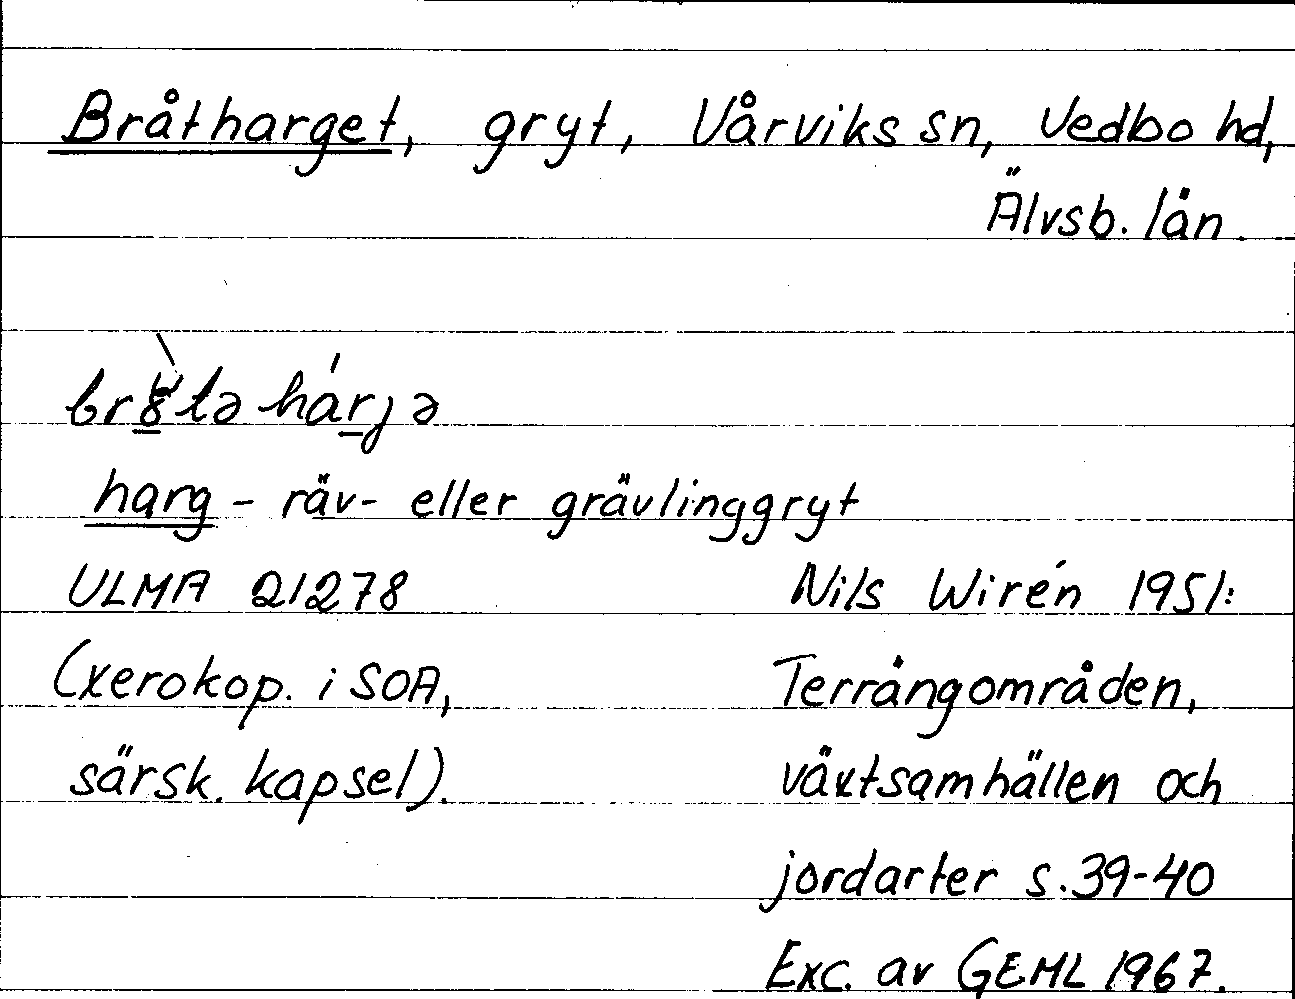 Bråtharget, gryt, Vårviks sn, Vedbo hd,
Älvsb. län.
harg - räv- eller grävlinggryt
ULMA 21278
Nils Wirén 1951:
(xerokop. i SOA,
Terrängområden,
särsk. kapsel).
växtsamhällen och
jordarter s. 39-40
Exc. av GEML 1967.